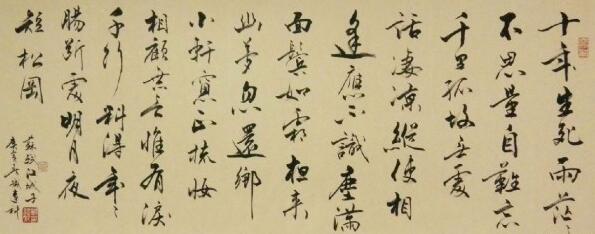 十年生死兩茫々
不思量自難忘
千里孤墳無處
話淒涼縱使相
逢應不識塵滿
面鬢如霜夜来
幽夢忽還鄉
小軒窗正梳妝
相顧無言惟有淚
千行料得年々
腸斷處明月夜
短松岡
蘇軾江城子